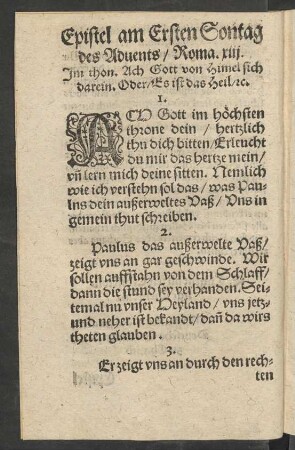 Epistel am Ersten Sontag
des Aduents / Roma. xiij.
Im thon. Ach Gott von Himel sich
darein. Oder / Es ist das Heil / ꝛc.
1.
ACH Gott im höchsten
throne dein / hertzlich
thu dich bitten / Erleucht
du mir das hertze mein /
vñ lern mich deine sitten. Nemlich
wie ich verstehn sol das / was Pau-
lus dein außerweltes Vaß / Vns in
gemein thut schreiben.
2.
Paulus das außerwelte Vaß /
zeigt vns an gar geschwinde. Wir
sollen auffstahn von dem Schlaff /
dann die stund sey verhanden. Sei-
temal nu vnser Heyland / vns jetz-
und neher ist bekandt / dañ da wirs
theten glauben.
3.
Er zeigt vns an durch den rech-
ten